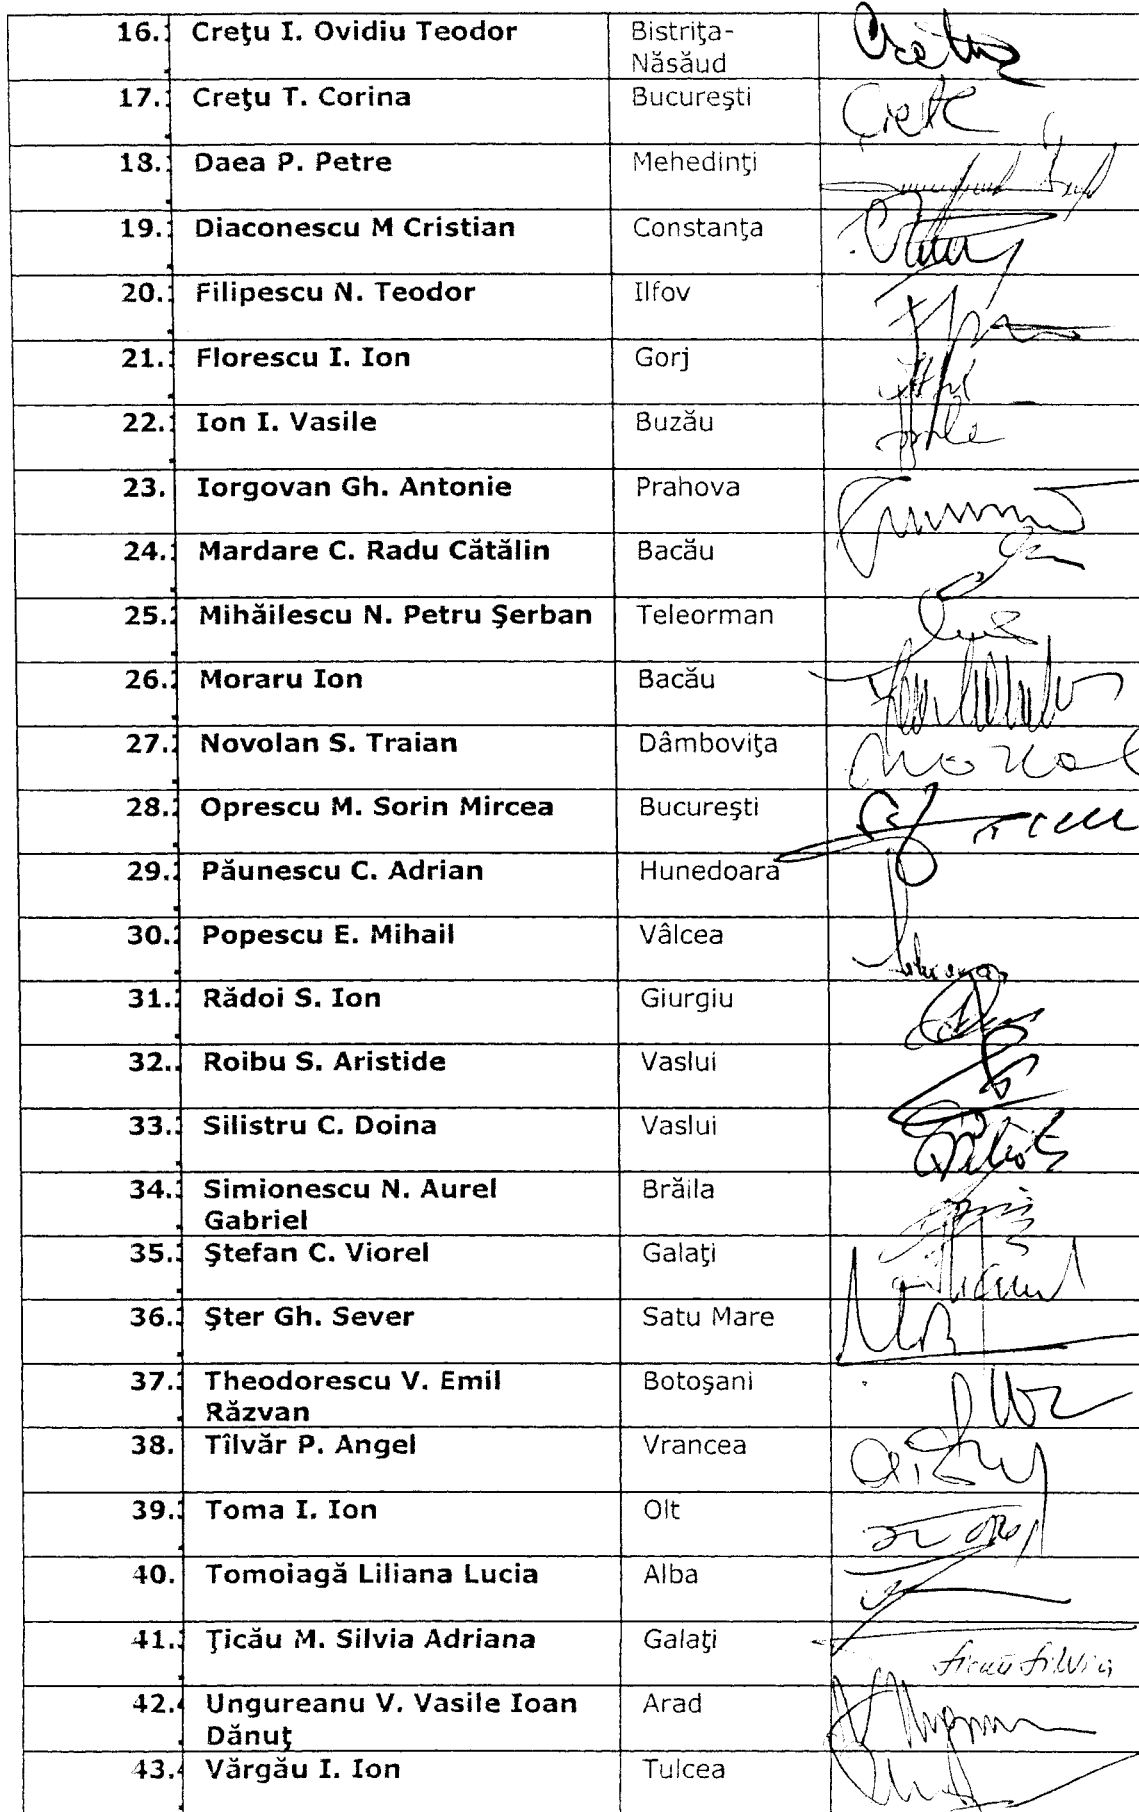 16. Creţu I. Ovidiu Teodor Bistriţa-
Năsăud
17. Creţu T. Corina Bucureşti
18. Daea P. Petre Mehedinţi
19. Diaconescu M Cristian Constanţa
20. Filipescu N. Teodor Ilfov
21. Florescu I. Ion Gorj
22. Ion I. Vasile Buzău
23. Iorgovan Gh. Antonie Prahova
24. Mardare C. Radu Cătălin Bacău
25. Mihăilescu N. Petru Şerban Teleorman
26. Moraru Ion Bacău
27. Novolan S. Traian Dâmboviţa
28. Oprescu M. Sorin Mircea Bucureşti
29. Păunescu C. Adrian Hunedoara
30. Popescu E. Mihail Vâlcea
31. Rădoi S. Ion Giurgiu
32. Roibu S. Aristide Vaslui
33. Silistru C. Doina Vaslui
34. Simionescu N. Aurel Brăila
Gabriel
35. Ştefan C. Viorel Galaţi
36. Şter Gh. Sever Satu Mare
37. Theodorescu V. Emil Botoşani
Răzvan
38. Tîlvăr P. Angel Vrancea
39. Toma I. Ion Olt
40. Tomoiagă Liliana Lucia Alba
41. Ţicău M. Silvia Adriana Galaţi
42. Ungureanu V. Vasile Ioan Arad
Dănuţ
43. Vărgău I. Ion Tulcea